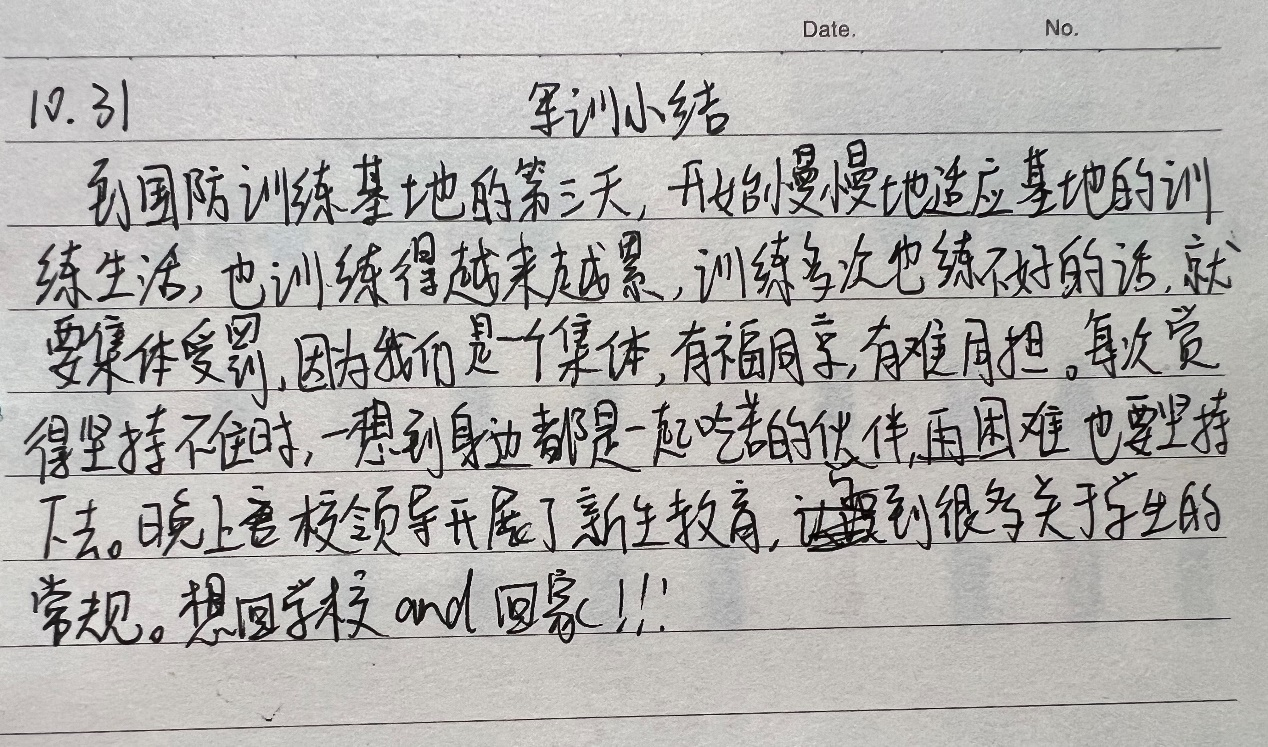 Date. No.
10.31 军训小结
到国防训练基地的第三天,开始慢慢地适应基地的训
练生活,也训练得越来越累,训练多次也练不好的话,就
要集体受罚,因为我们是一个集体,有福同享,有难同担。每次觉
得坚持不住时,一想到身边都是一起吃苦的伙伴,再困难也要坚持
下去。晚上校领导开展了新生教育,到很多关于学生的
常规。想回学校and回家!!!